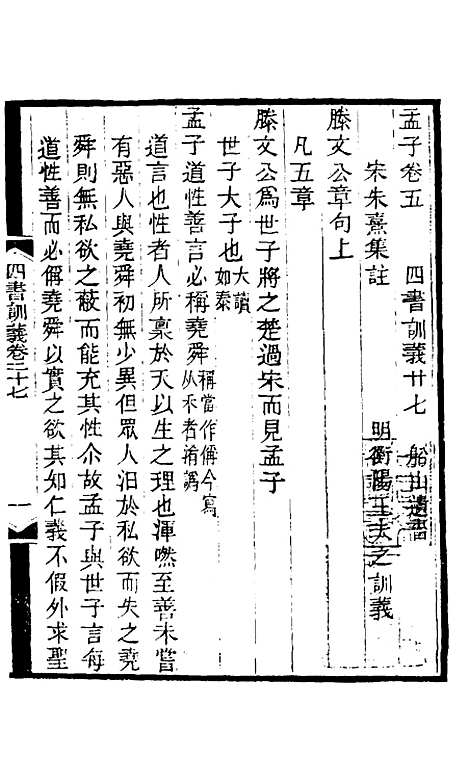 孟子卷五　四書訓義廿七　船山遺書
宋朱熹集註　明衡陽王夫之訓義
滕文公章句上
凡五章
滕文公爲世子將之楚過宋而見孟子
世子大子也大讀如泰
孟子道性善言必稱堯舜稱當作偁今寫从禾者淆譌
道言也性者人所稟於天以生之理也渾然至善未嘗
有惡人與堯舜初無少異但眾人汨於私欲而失之堯
舜則無私欲之蔽而能充其性尒故孟子與世子言每
道性善而必偁堯舜以實之欲其知仁義不假外求聖
四書訓義卷二十七　一